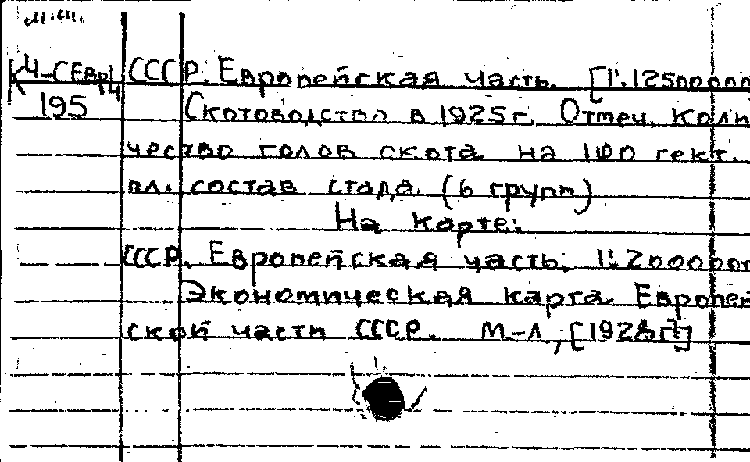 К4-СЕвр/4
195
СССР. Европейская часть. [1:12500000
Скотоводство в 1925 г. Отмеч. коли
чество голов скота на 100 гект.
пл. состав стада. (6 групп)
На карте:
СССР. Европейская часть. 1:2000000
Экономическая карта Европей
ской части СССР. М-Л,